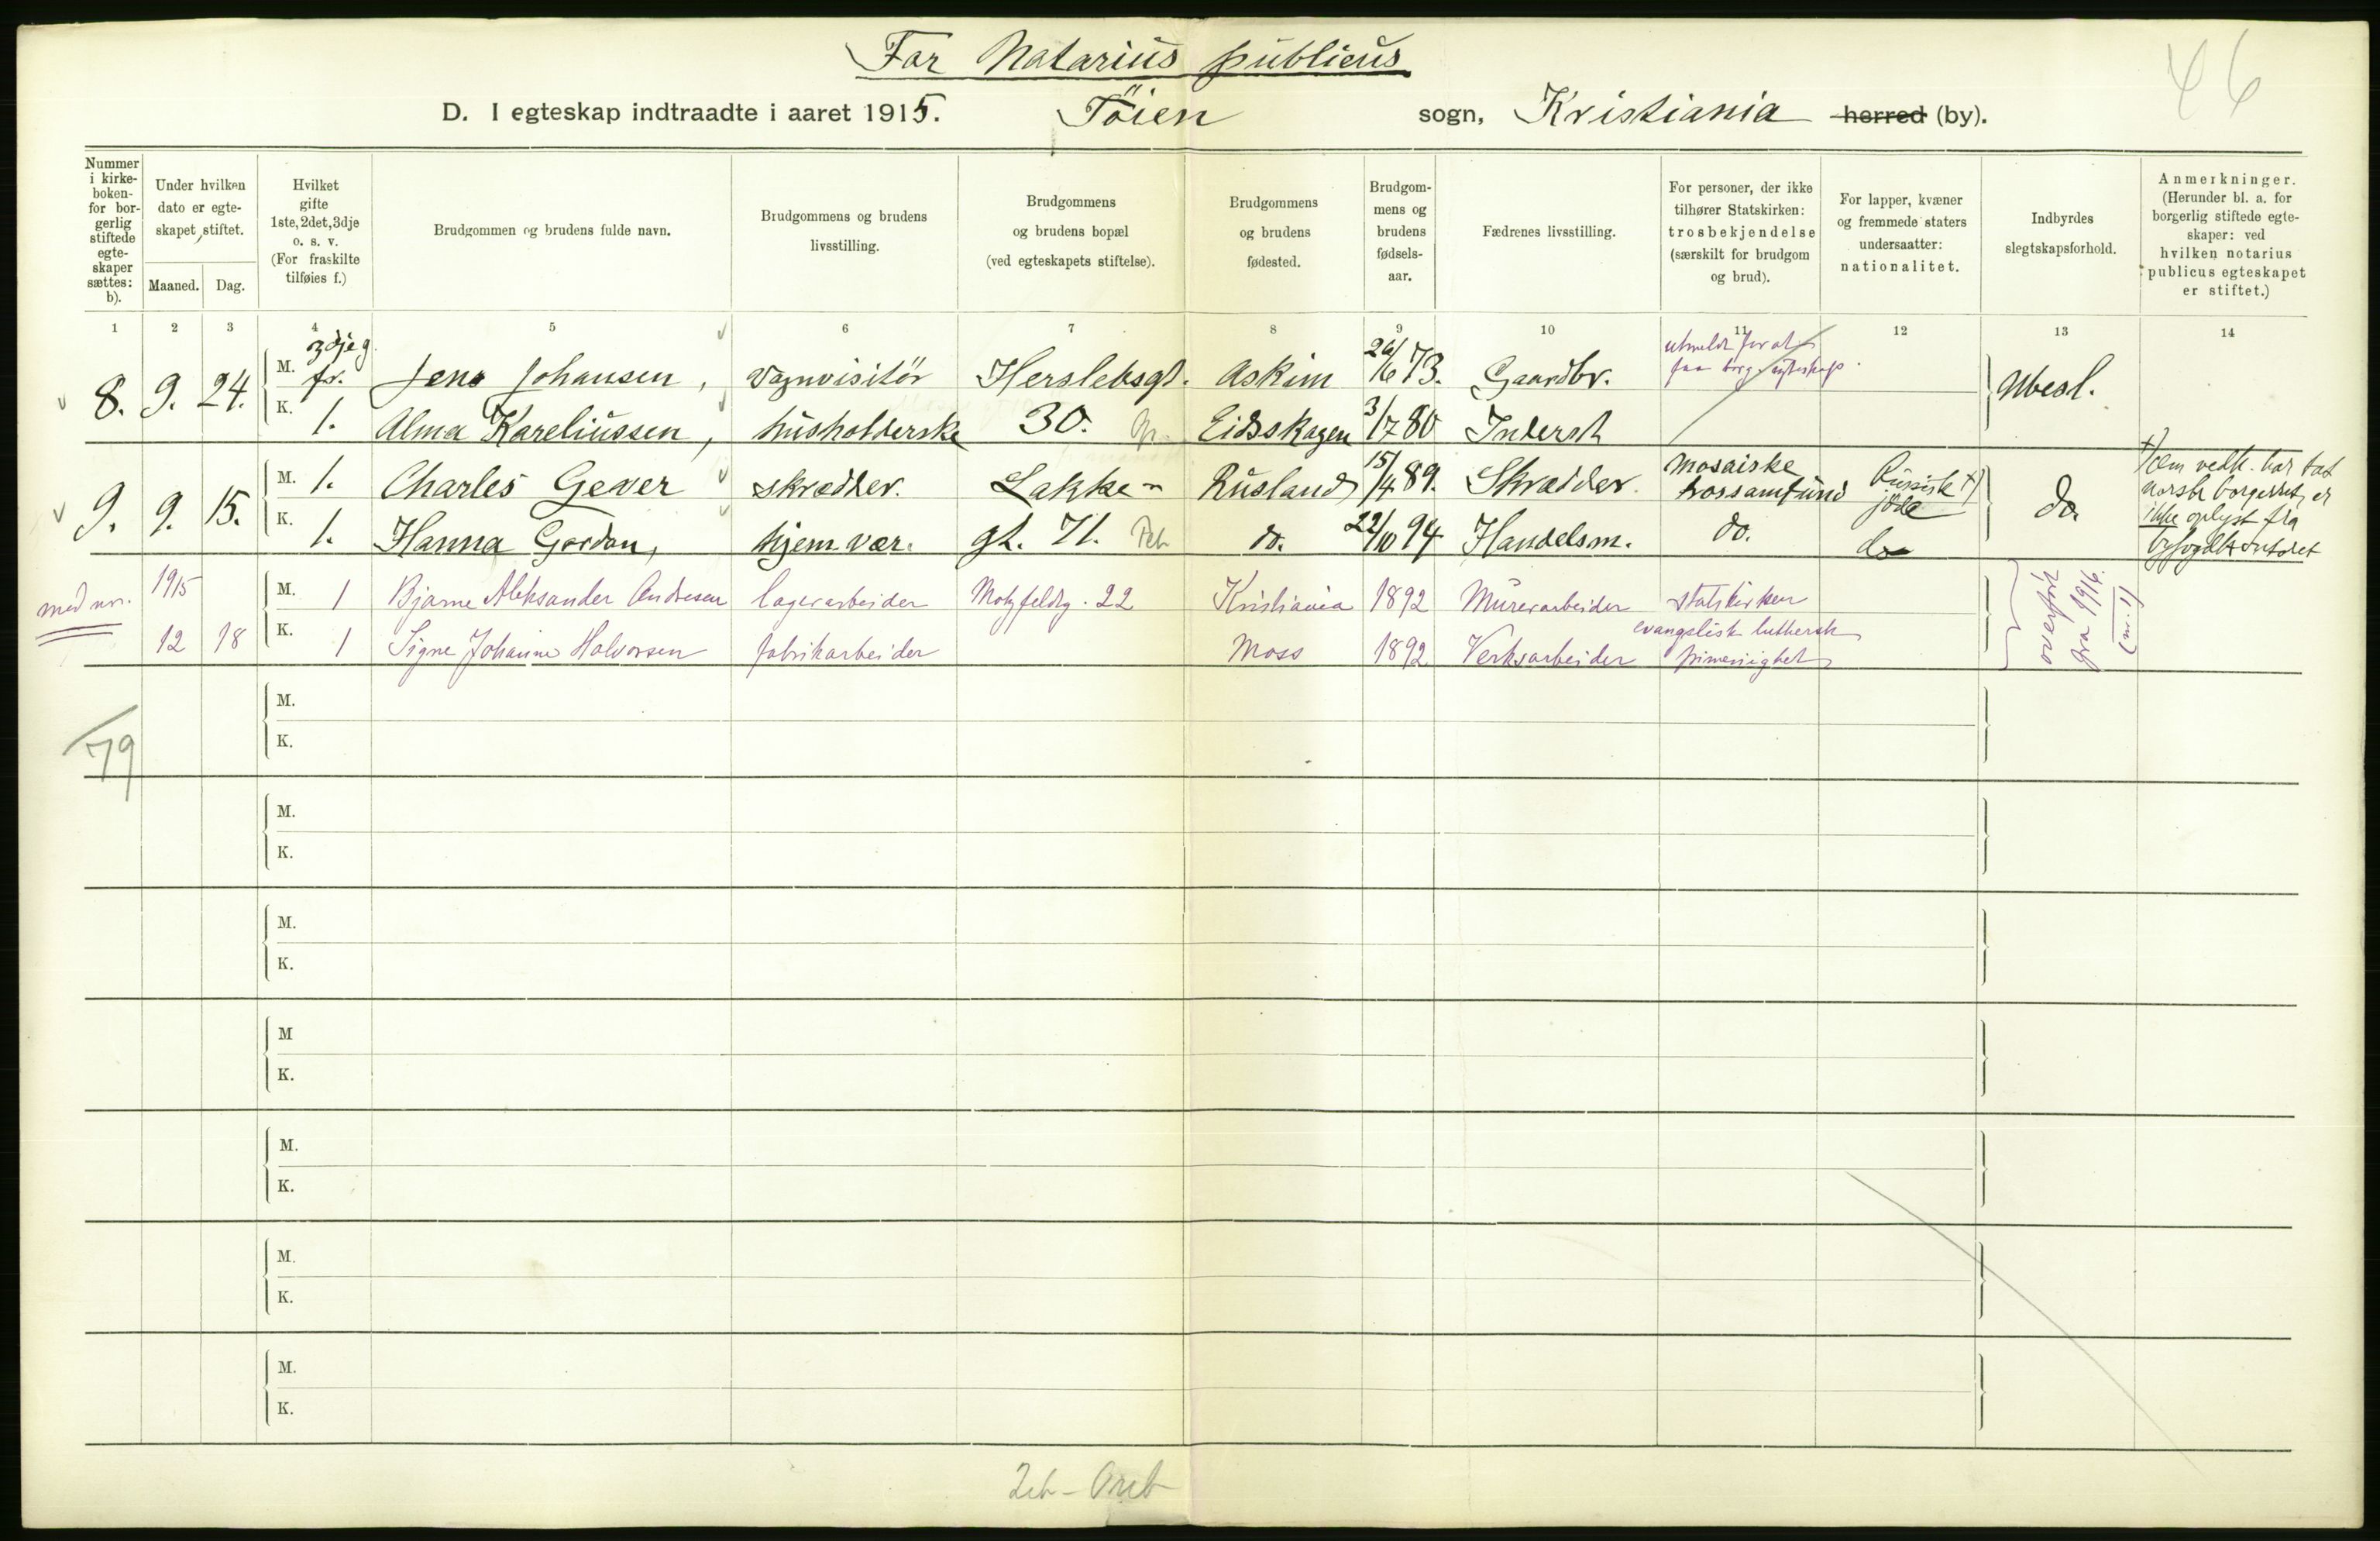 For Notarius publicus
46
D. I egteskap indtraadte i aaret 1915. Töien sogn, Kristiania herred (by).
Nummer i kirke-boken- for bor-gerlig stiftede egte-skaper sættes: b).
Under hvilken dato er egte-skapet stiftet.
Maaned. Dag.
Hvilket gifte 1ste, 2det, 3dje o. s. v. (For fraskilte tilføies f.)
Brudgommen og brudens fulde navn.
Brudgommens og brudens livsstilling.
Brudgommens og brudens bopæl (ved egteskapets stiftelse).
Brudgommens og brudens fødested.
Brudgom-mens og brudens fødsels-aar.
Fædrenes livsstilling.
For personer, der ikke tilhører Statskirken: trosbekjendelse (særskilt for brudgom og brud).
For lapper, kvæner og fremmede staters undersaatter: nationalitet.
Indbyrdes slegtskapsforhold.
Anmerkninger. (Herunder bl. a. for borgerlig stiftede egte-skaper: ved hvilken notarius publicus egteskapet er stiftet.)
1 2 3 4 5 6 7 8 9 10 11 12 13 14
8. 9. 24. M. 3dje g. fr. Jens Johansen, vognvisitör Herslebsgt. Askim 26/6 73. Gaardbr. utmeldt for at faa borg. egteskap. Ubesl.
K. 1. Alma Kareliussen, husholderske 30. Eidsskogen 3/7 80 Inderst
9. 9. 15. M. 1. Charles Gever skrædder. Lakke- Rusland 15/4 89. Skrædder. mosaiske trossamfund Russisk +) jöde do. +) Om vedk. har tat norsk borgerret, er ikke oplyst fra byfogdkontoret
K. 1. Hanna Gordon, hjem. vær. gt. 71. do. 22/10 94 Handelsm. do. do
med nr. 1915 12 18 M. 1 Bjarne Aleksander Andresen lagerarbeider Motzfeldtg. 22 Kristiania 1892 Murerarbeider statskirken overført fra 1916. (nr. 1)
K. 1 Signe Johanne Halvorsen fabrikarbeider Moss 1892 Verksarbeider evangelisk luthersk frimenighet
M.
K.
79
M.
K.
M.
K.
M
K.
M.
K.
M.
K.
M.
K.